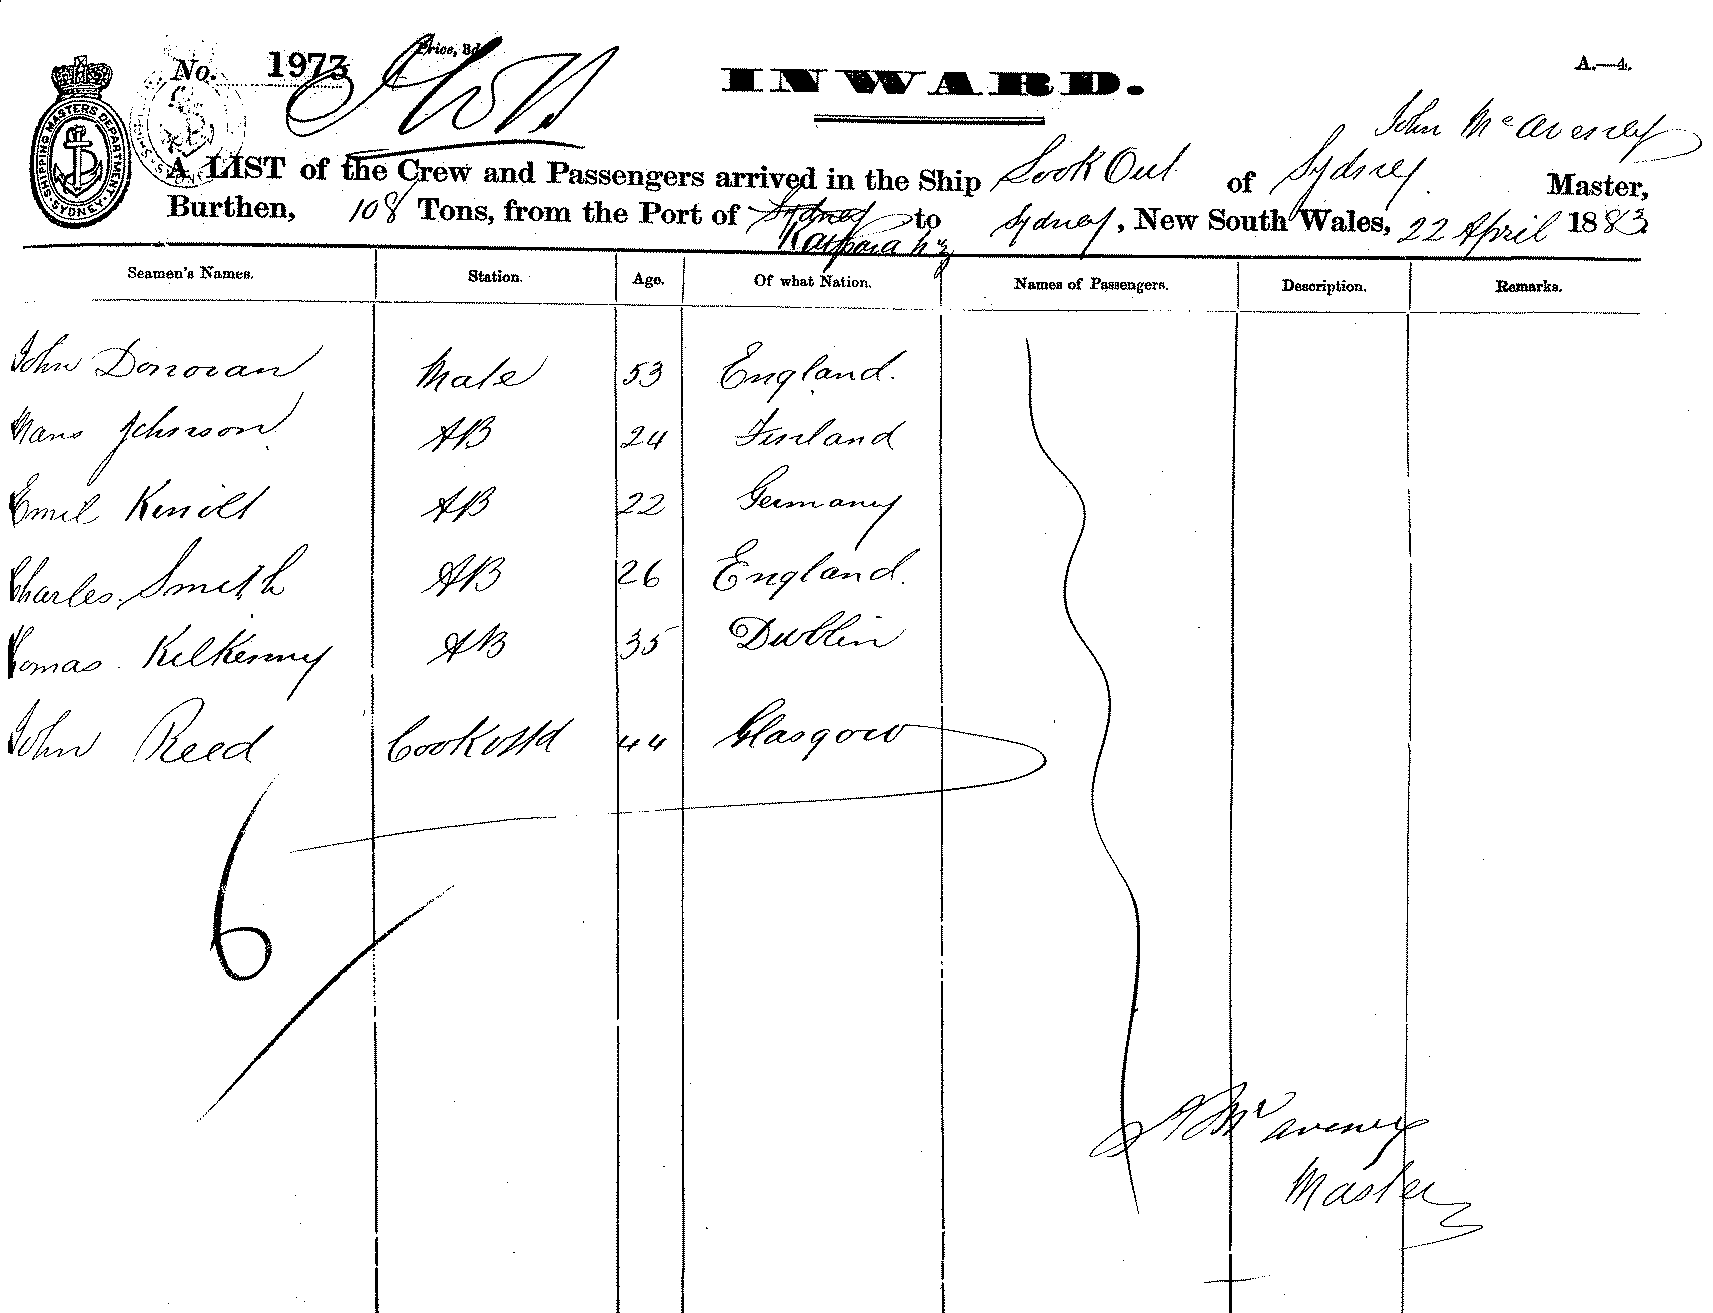 No. 1973
Price, 3d
INWARD.
A.—4.
SHIPPING MASTERS DEPARTMENT SYDNEY
John McAveney
A LIST of the Crew and Passengers arrived in the Ship Look Out of Sydney. Master,
Burthen, 108 Tons, from the Port of Sydney to Sydney, New South Wales, 22 April 1883.
Seamen's Names. Station. Age. Of what Nation. Names of Passengers. Description. Remarks.
John Donovan Mate 53 England.
Hans Johnson AB 24 Finland
Emil AB 22 Germany
Charles Smith AB 26 England.
Tomas Kilkenny AB 35 Dublin
John Reed Cook & Std 44 Glasgow
6
J McAveney
Master